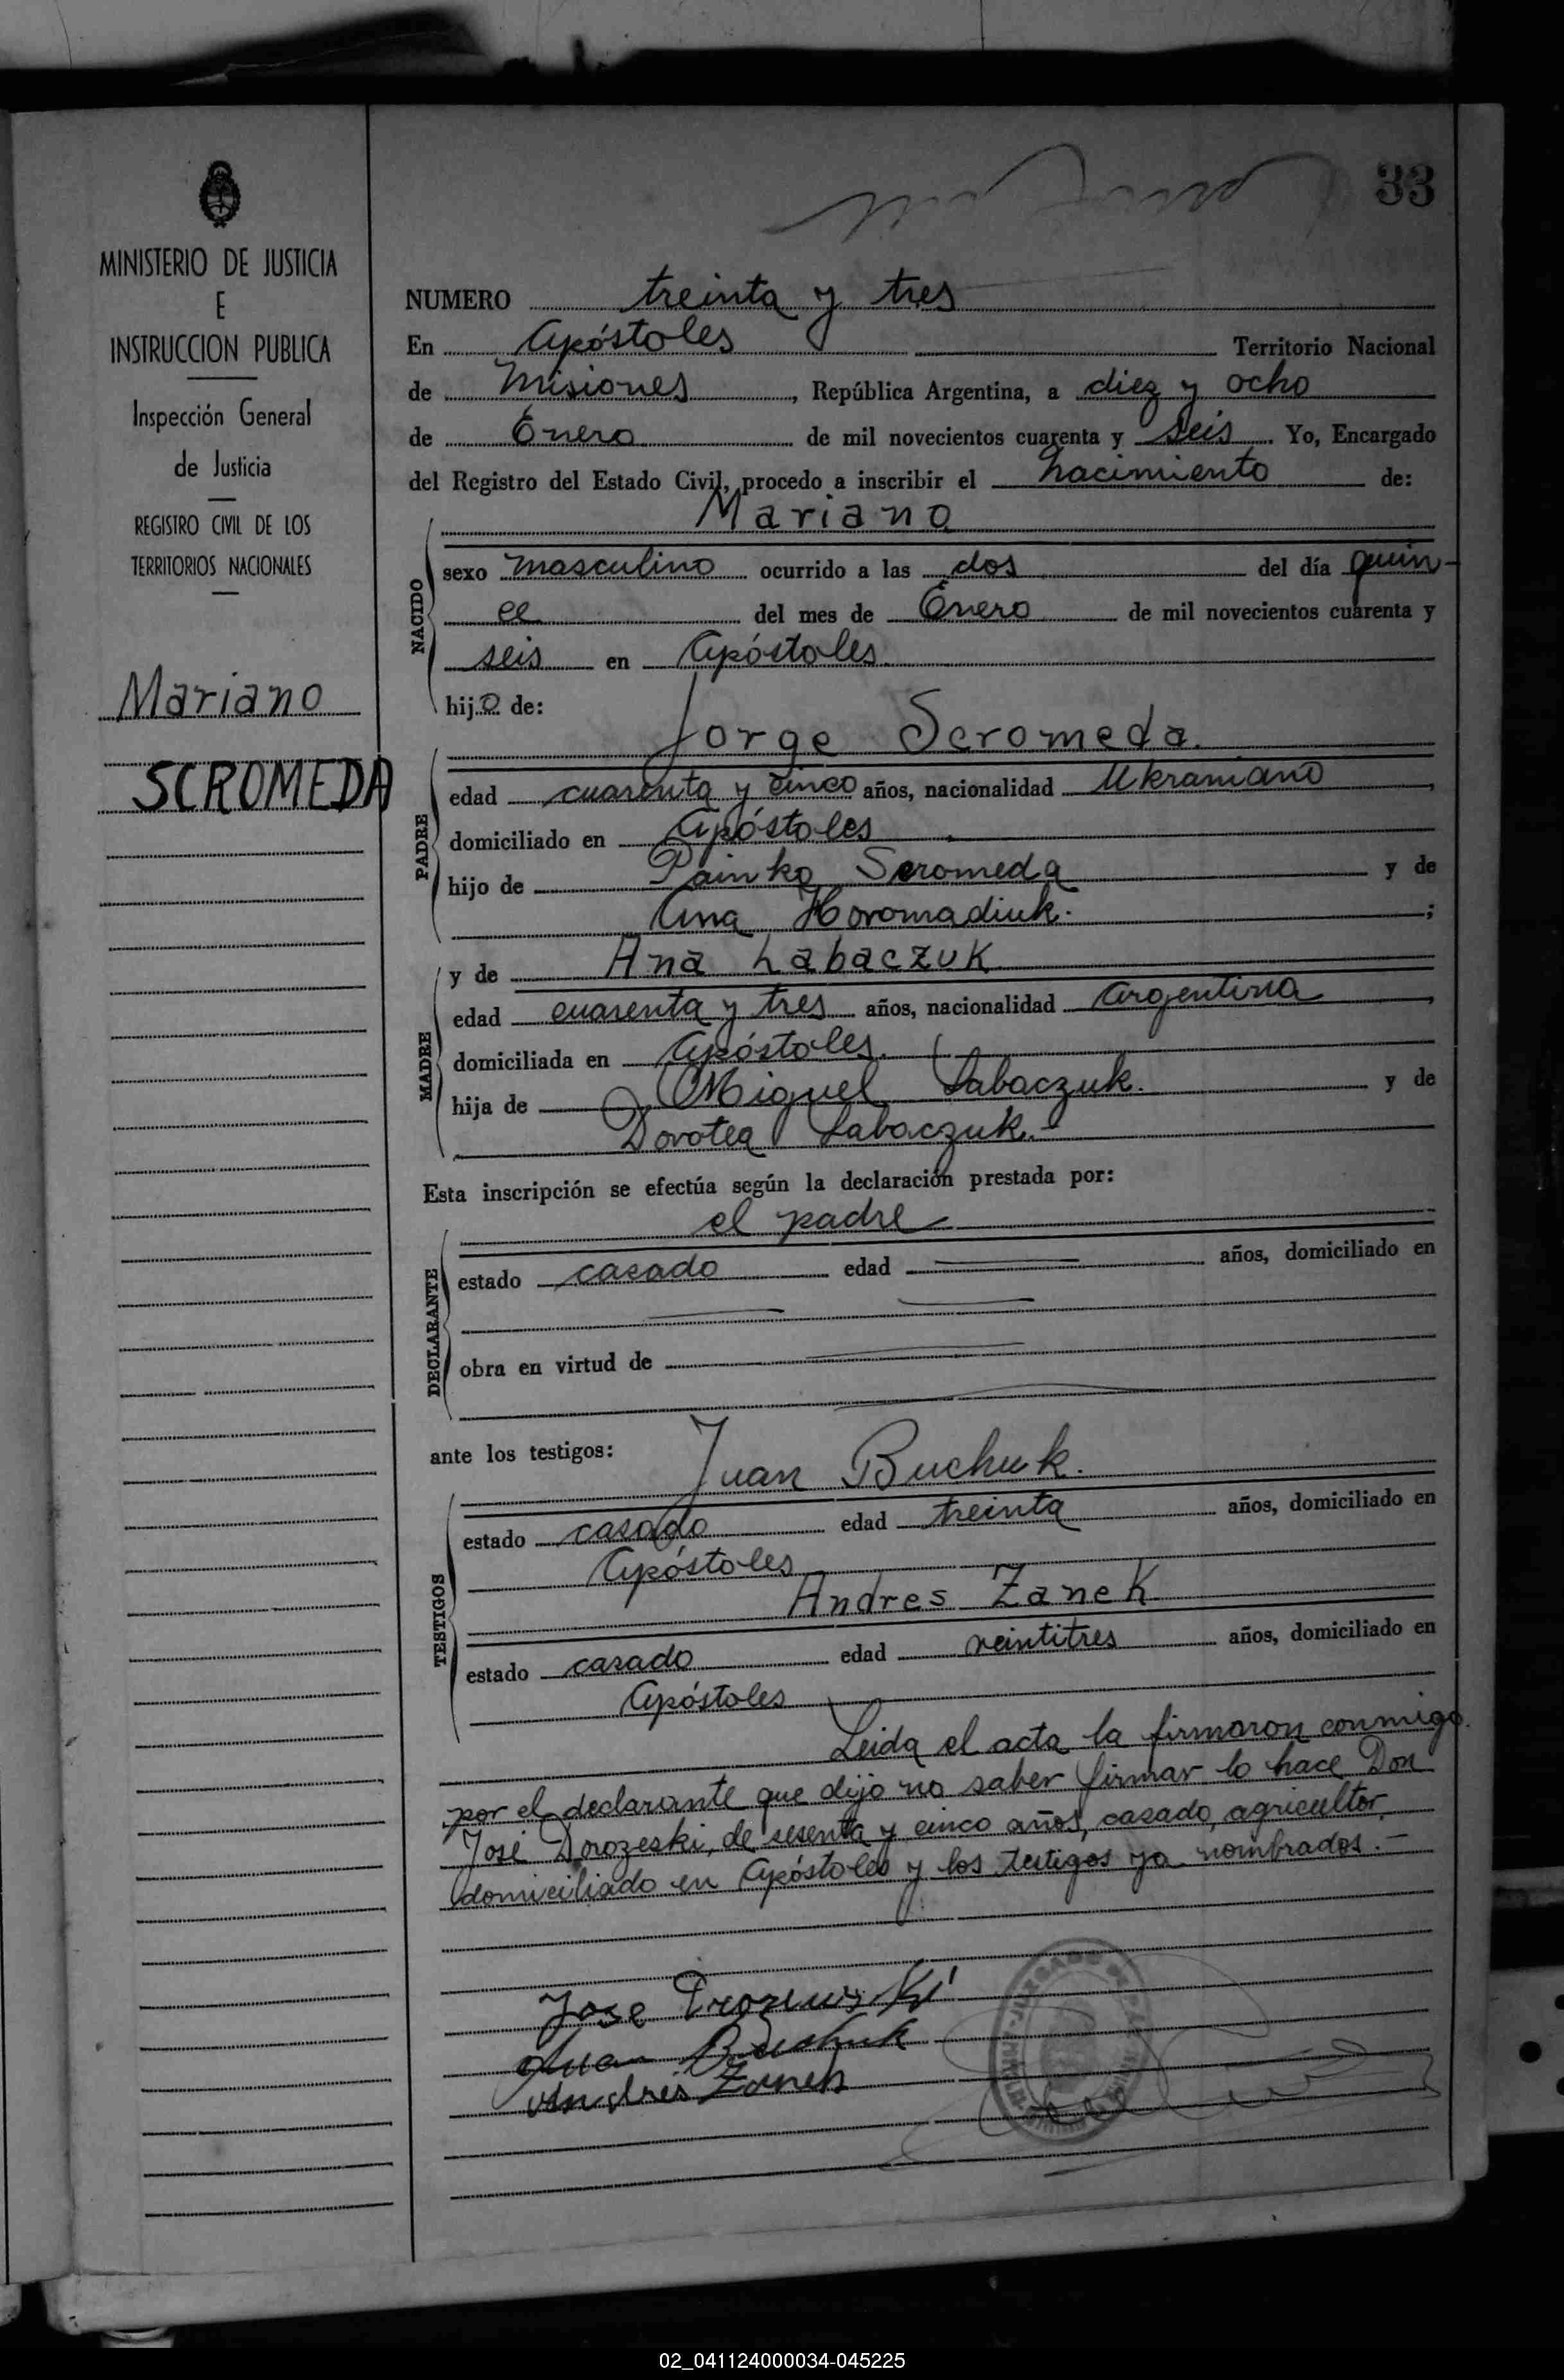 33
MINISTERIO DE JUSTICIA
E
INSTRUCCION PUBLICA
Inspección General
de Justicia
REGISTRO CIVIL DE LOS
TERRITORIOS NACIONALES
Mariano
SCROMEDA
NUMERO treinta y tres
En Apóstoles Territorio Nacional
de Misiones, República Argentina, a diez y ocho
de Enero de mil novecientos cuarenta y seis. Yo, Encargado
del Registro del Estado Civil, procedo a inscribir el nacimiento de:
Mariano
NACIDO
sexo masculino ocurrido a las dos del día quin-
ce del mes de Enero de mil novecientos cuarenta y
seis en Apóstoles
hijo de:
Jorge Scromeda.
PADRE
edad cuarenta y cinco años, nacionalidad Ukraniano,
domiciliado en Apóstoles
hijo de Painko Scromeda y de
Ana Horomadiuk.;
MADRE
y de Ana Labaczuk
edad cuarenta y tres años, nacionalidad Argentina,
domiciliada en Apóstoles.
hija de Miguel Labaczuk. y de
Dorotea Labaczuk.-
Esta inscripción se efectúa según la declaración prestada por:
el padre
DECLARANTE
estado casado edad años, domiciliado en
obra en virtud de
ante los testigos:
Juan Buchuk.
TESTIGOS
estado casado edad treinta años, domiciliado en
Apóstoles
Andres Zanek
estado casado edad veintitres años, domiciliado en
Apóstoles
Leida el acta la firmaron conmigo.
por el declarante que dijo no saber firmar lo hace Don
José Dorozeski, de sesenta y cinco años, casado, agricultor,
domiciliado en Apóstoles y los testigos ya nombrados.-
Jose
Juan Buchuk
Andrés Zanek
02_041124000034-045225